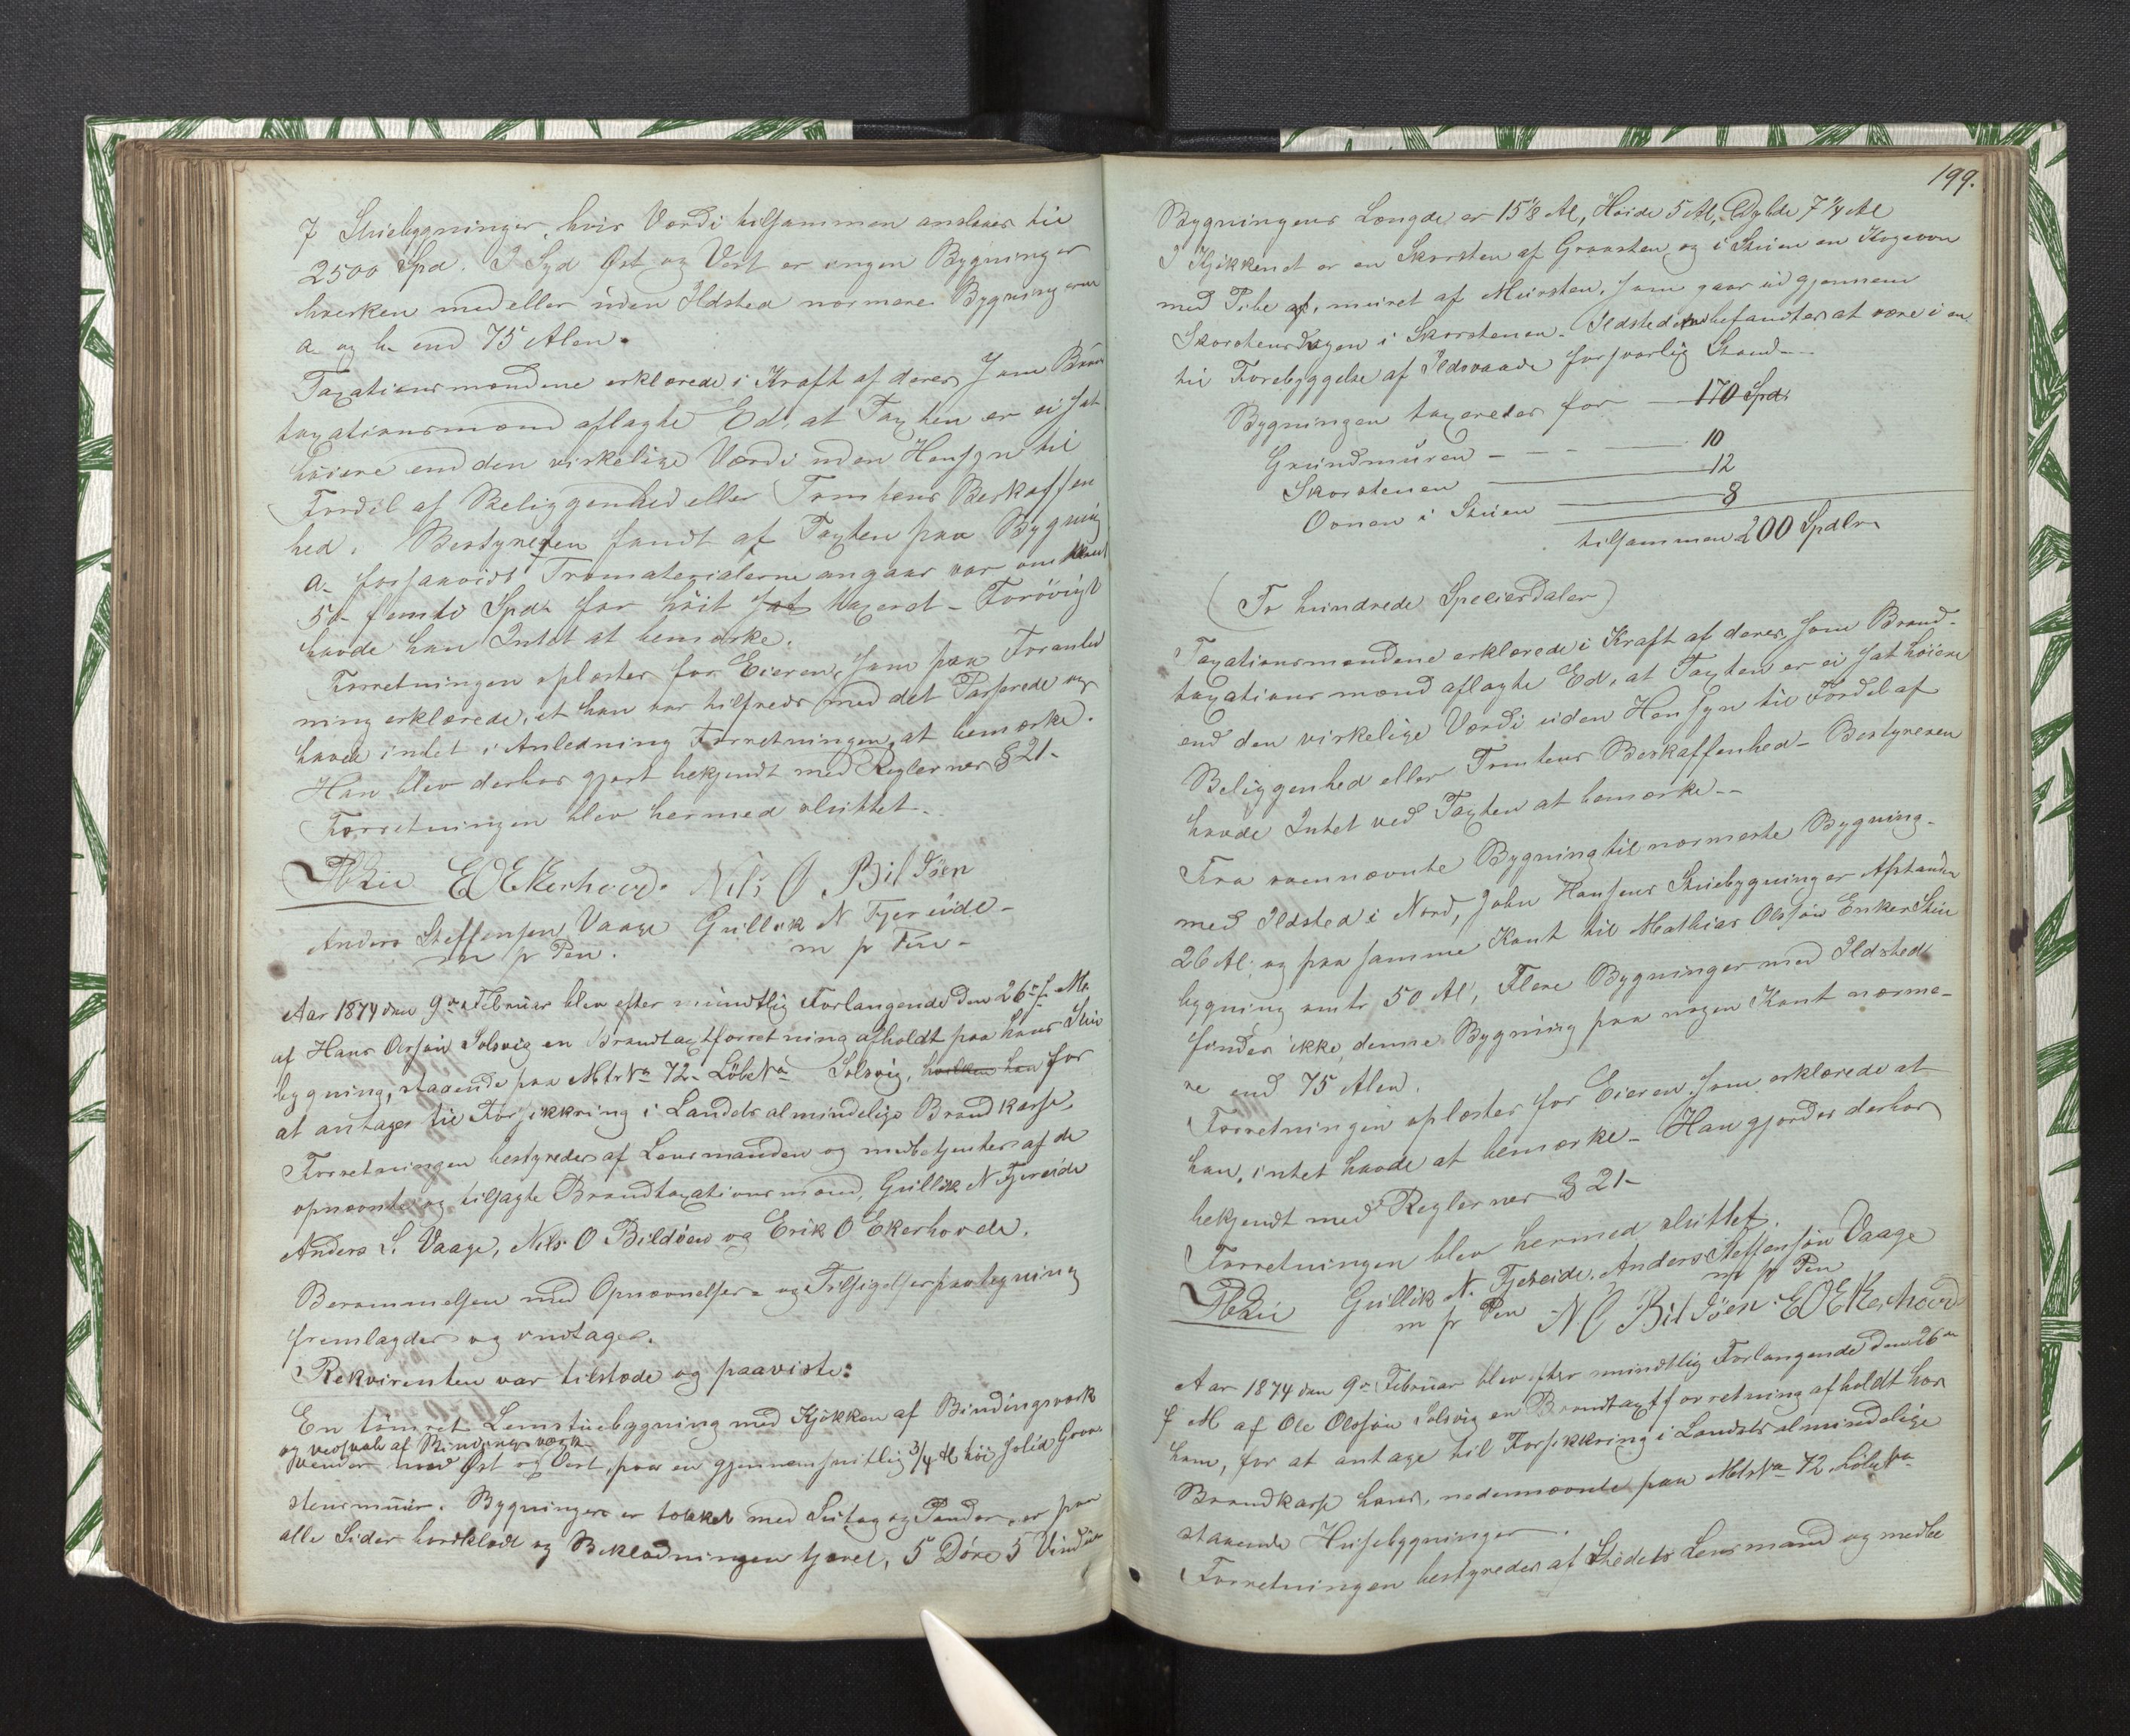 7 Stuebygninger, hvis Værdi tilsammen ansloges til
2500 Spd. I Syd Øst og Vest er ingen Bygninger
hverken med eller uden Ildsted nærmere Bygningerne
a og b end 75 Alen.
Taxationsmændene erklærede i Kraft af deres som Brand
taxationsmænd aflagte Ed, at Taxten er ei sat
høiere end den virkelige Værdi uden Hensyn til
Fordel af Beliggenhed eller Tomtens Beskaffen
hed. Bestyreren fandt at Taxten paa Bygning
a. forsaavidt Træmaterialerne angaar var omtrent
50 femti Spd for høit sat taxeret - Forøvrigt
havde han Intet at bemærke.
Forretningen oplæstes for Eieren, som paa Foranled
ning erklærede, at han var tilfreds med det Passerede og
havde intet i Anledning Forretningen at bemærke.
Han blev derhos gjort bekjendt med Reglernes § 21-
Forretningen blev hermed sluttet.
E O Ekerhovd. Nils O Bildöen
Anders Steffensen Vaage Gullik N Fjereide-
m p Pen. m p Pen-
Aar 1874 den 9de Februar blev efter mundtlig Forlangende den 26de f. M.
af Hans Olsøn Solsvig en Brandtaxtforretning afholdt paa hans Stue
bygning, staaende paa Mtr No 72. Løbe No Solsvig, for
at antages til Forsikkring i Landets almindelige Brandkasse.
Forretningen bestyredes af Lensmanden og medbetjentes af de
opnævnte og tilsagte Brandtaxationsmænd, Gullik N Fjereide
Anders S. Vaage, Nils O Bildøen og Erik O Ekerhovde.
Berammelsen med Opnævnelses- og Tilsigelsespaategning
fremlagdes og indtages.
Rekvirenten var tilstede og paaviste:
En tømret Lemstuebygning med Kjøkken af Bindingsværk
og vedsval af Bindingsværk
vender mod Øst og Vest, paa en gjennemsnitlig 3/4 Al høi solid Graa-
stensmuur. Bygningen er tækket med Sutag og Pander, er paa
alle Sider bordklædt og Beklædningen tjæret, 5 Døre 5 Vinduer
199.
Bygningens Længde er 15 1/8 Al, Høide 5 Al, Dybde 7 1/4 Al
I Kjøkkenet er en Skorsten af Graasten og i Stuen en Kogeovn
med Pibe af, muret af Mursten, som gaar ud gjennem
i Skorstenen. Ildstederne befandtes at være i en
til Forebyggelse af Ildsvaade forsvarlig Stand-
Bygningen taxeredes for 170 Spd.
Grundmuren - - - 10
Skorstenen 12
Ovnen i Stuen 8
tilsammen 200 Spdlr
(To hundrede Speciesdaler)
Taxationsmændene erklærede i Kraft af deres som Brand-
taxationsmænd aflagte Ed, at Taxten er ei sat høiere
end den virkelige Værdi uden Hensyn til Fordel af
Beliggenhed eller Tomtens Beskaffenhed - Bestyreren
havde Intet ved Taxten at bemærke -
Fra ommnævnte Bygning til nærmeste Bygning-
med Ildsted i Nord, John Hansens Stuebygning er Afstanden
26 Al. og paa samme Kant til Mathias Olsøns Enkes Stue
bygning omtr 50 Al, Flere Bygninger med Ildsted
findes ikke denne Bygning paa nogen Kant nærme-
re end 75 Alen.
Forretningen oplæstes for Eieren som erklærede at
han intet havde at bemærke - Han gjordes derhos
bekjendt med Reglernes § 21-
Forretningen blev hermed sluttet.
Gullik N. Fjereide. Anders Steffensøn Vaage
m p Pen m p Pen
N. O Bildöen. E O Ekerhovd
Aar 1874 den 9de Februar blev efter mundtlig Forlangende den 26de
f M af Ole Olssøn Solsvig en Brandtaxtforretning afholdt hos
ham, for at antage til Forsikkring i Landets almindelige
Brandkasse hans, nedennævnte paa Mtr No 72 Løbe No
staaende Husebygninger.
Forretningen bestyredes af Stedets Lensmand og medbe